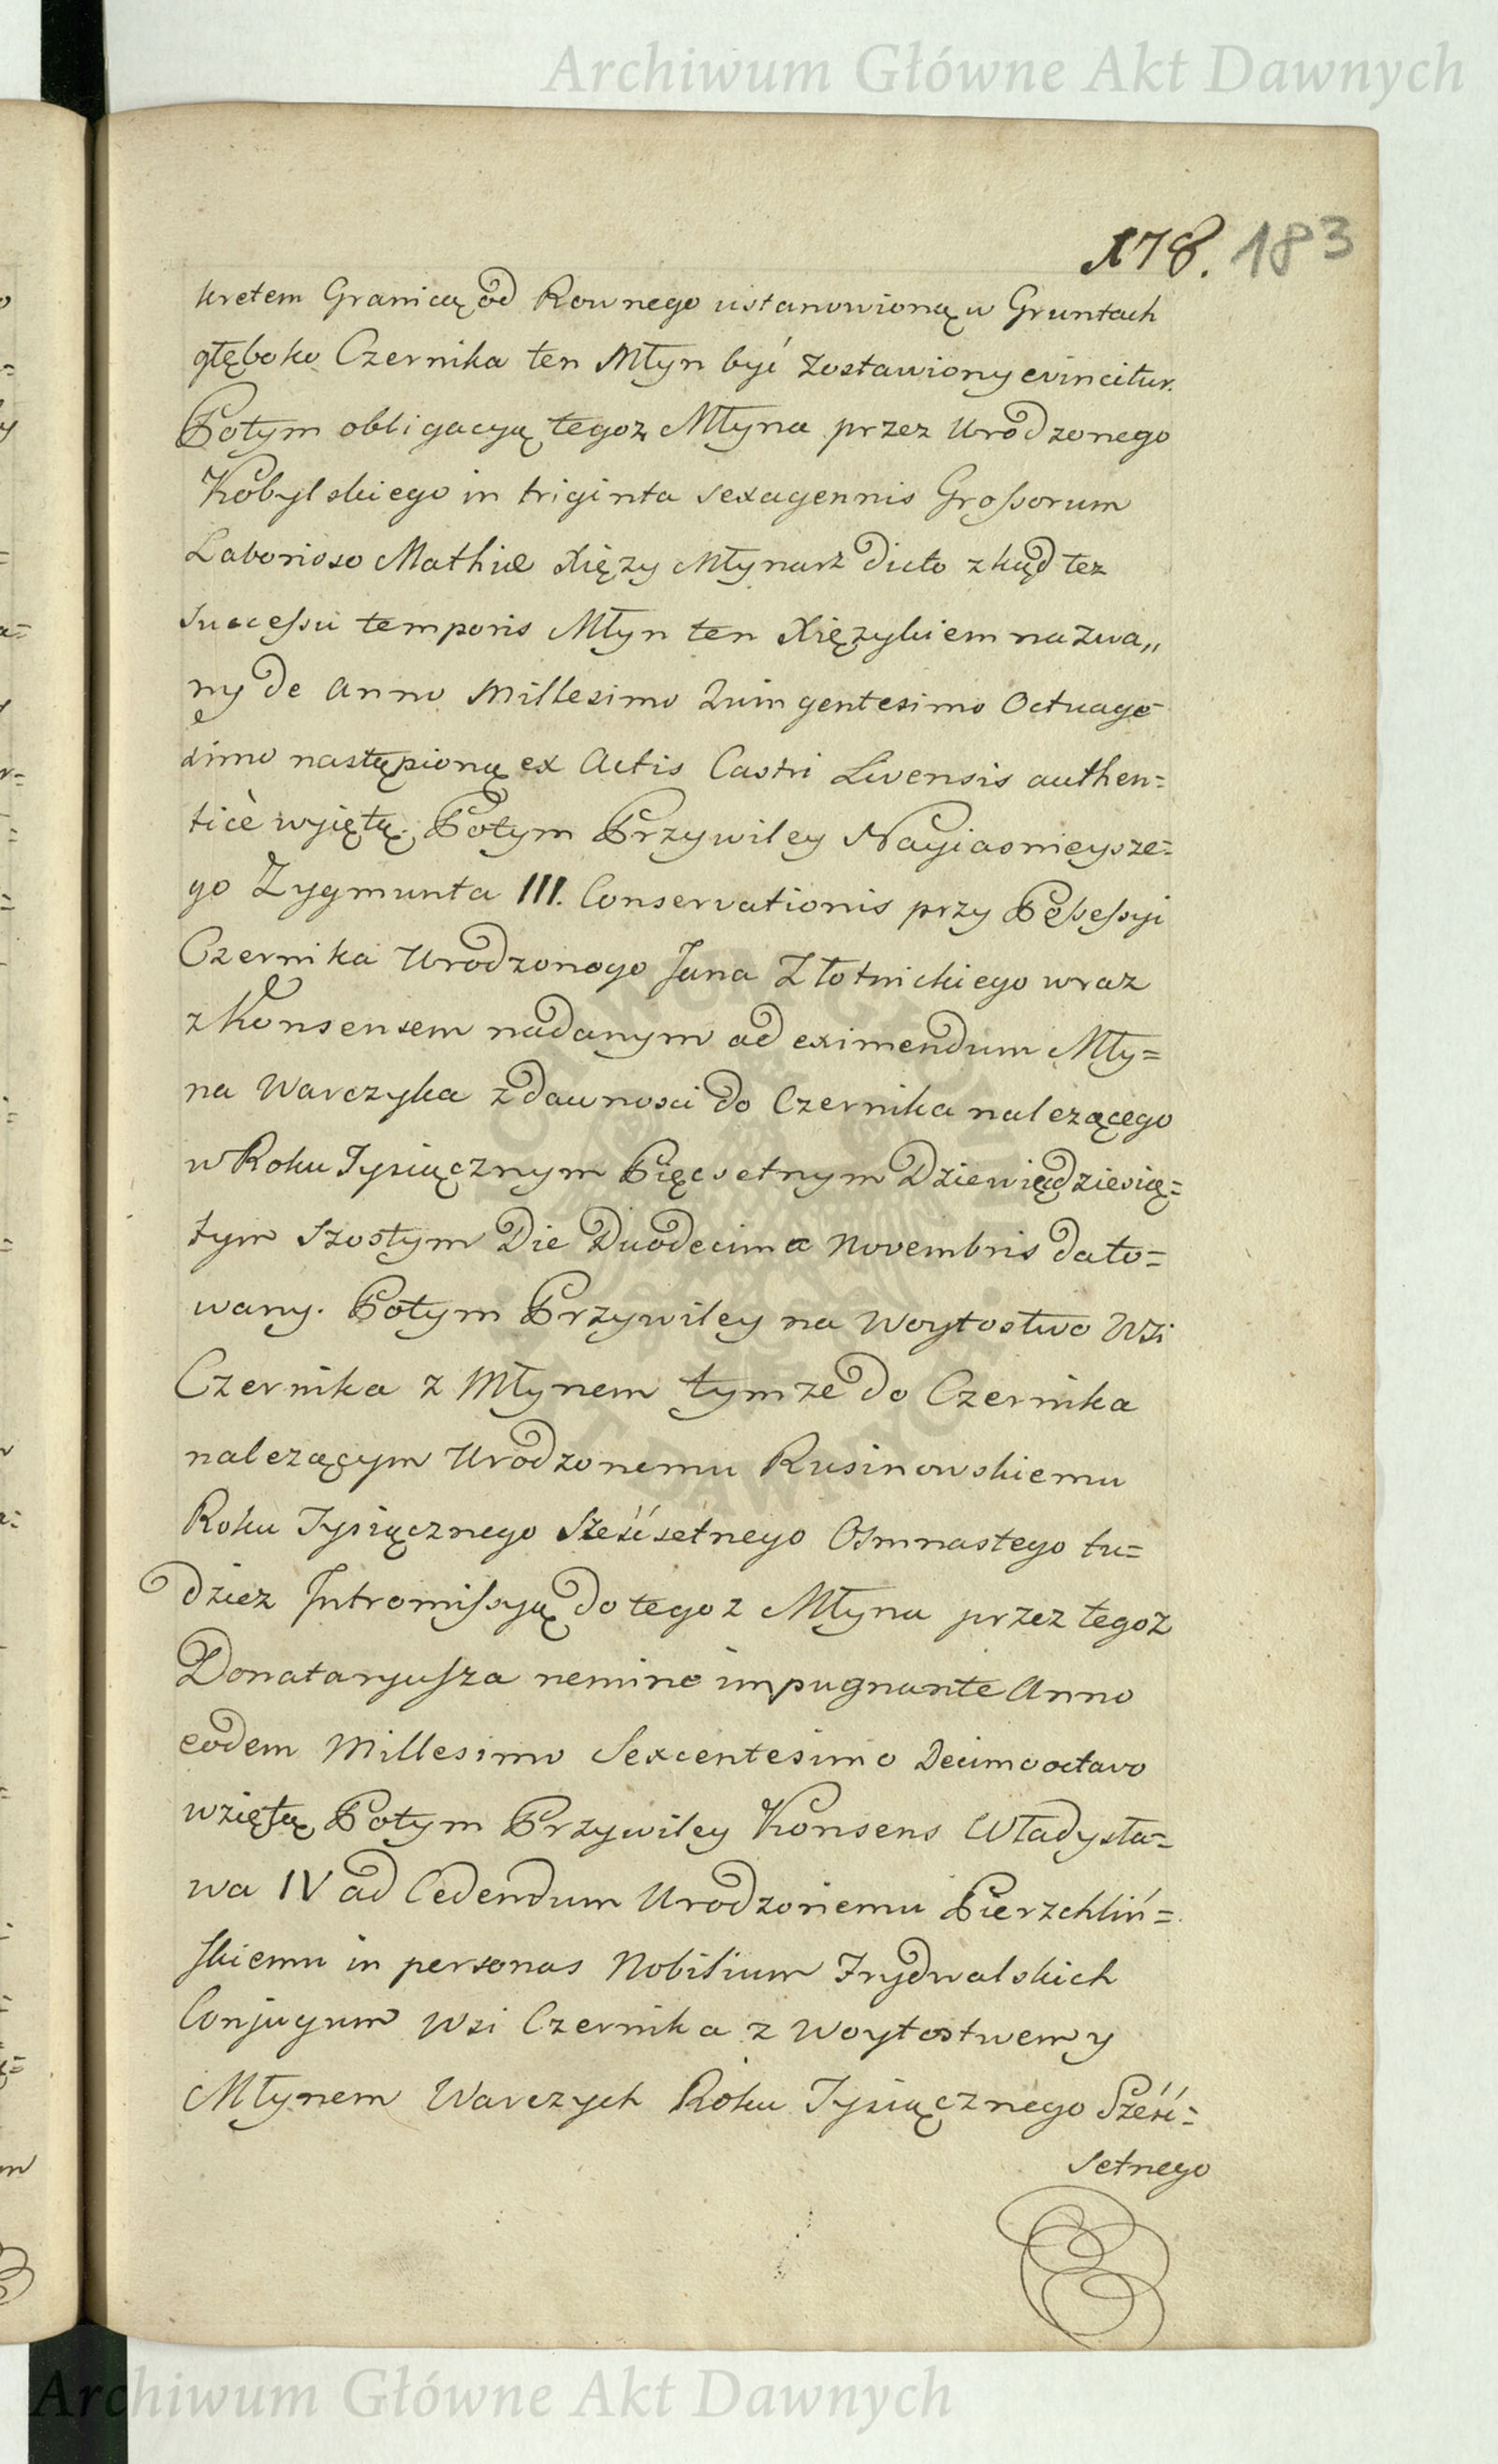 Archiwum Główne Akt Dawnych
178. 183
kretem Granicą od Rownego ustanowioną w Gruntach
głęboko Czernika ten Młyn być zostawiony evincitur.
Potym obligacyą tegoz Młyna przez Urodzonego
Kobylskiego in triginta sexagennis Grossorum
Laborioso Mathiæ Xięzy Młynarz dicto zkąd tez
successu temporis Młyn ten Xięzykiem nazwa„
ny de Anno Millesimo Quingentesimo Octuage=
simo nastąpioną ex Actis Castri Livensis authen=
ticè wyiętą. Potym Przywiley Nayiasnieysze=
go Zygmunta III. Conservationis przy Possessyi
Czernika Urodzonego Jana Złotnickiego wraz
z Konsensem nadanym ad eximendum Mły=
na Warczyka zdawnosci do Czernika nalezącego
w Roku Tysiącznym Pięcsetnym Dziewiędziesię=
tym Szostym Die Duodecima Novembris dato=
wany. Potym Przywiley na Woytostwo Wsi
Czernika z Młynem tymze do Czernika
nalezącym Urodzonemu Rusinowskiemu
Roku Tysiącznego Sześćsetnego Osmnastego tu=
dziez Intromissyą do tegoz Młyna przez tegoz
Donataryusza nemine impugnante Anno
eodem Millesimo Sexcentesimo Decimo octavo
wziętą Potym Przywiley Konsens Władysła=
wa IV ad Cedendum Urodzonemu Pierzchliń=
skiemu in personas Nobilium Frydwalskich
Conjugum Wsi Czernika z Woytostwem y
Młynem Warczych Roku Tysiącznego Sześć=
setnego
Archiwum Główne Akt Dawnych